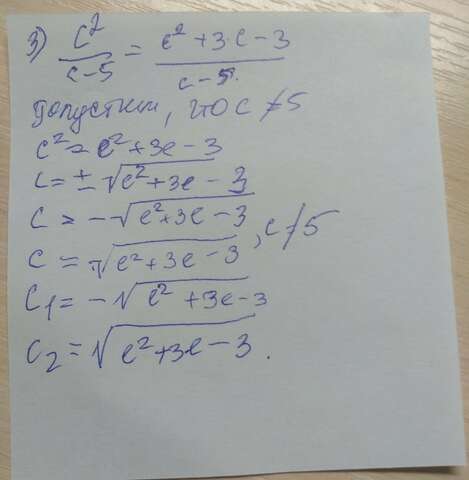 3) c²/c-5 = e²+3·c-3/c-5.
Допустим, что c≠5
c²=e²+3e-3
c=±√e²+3e-3
c=-√e²+3e-3
c=√e²+3e-3, c≠5
c₁=-√e²+3e-3
c₂=√e²+3e-3.